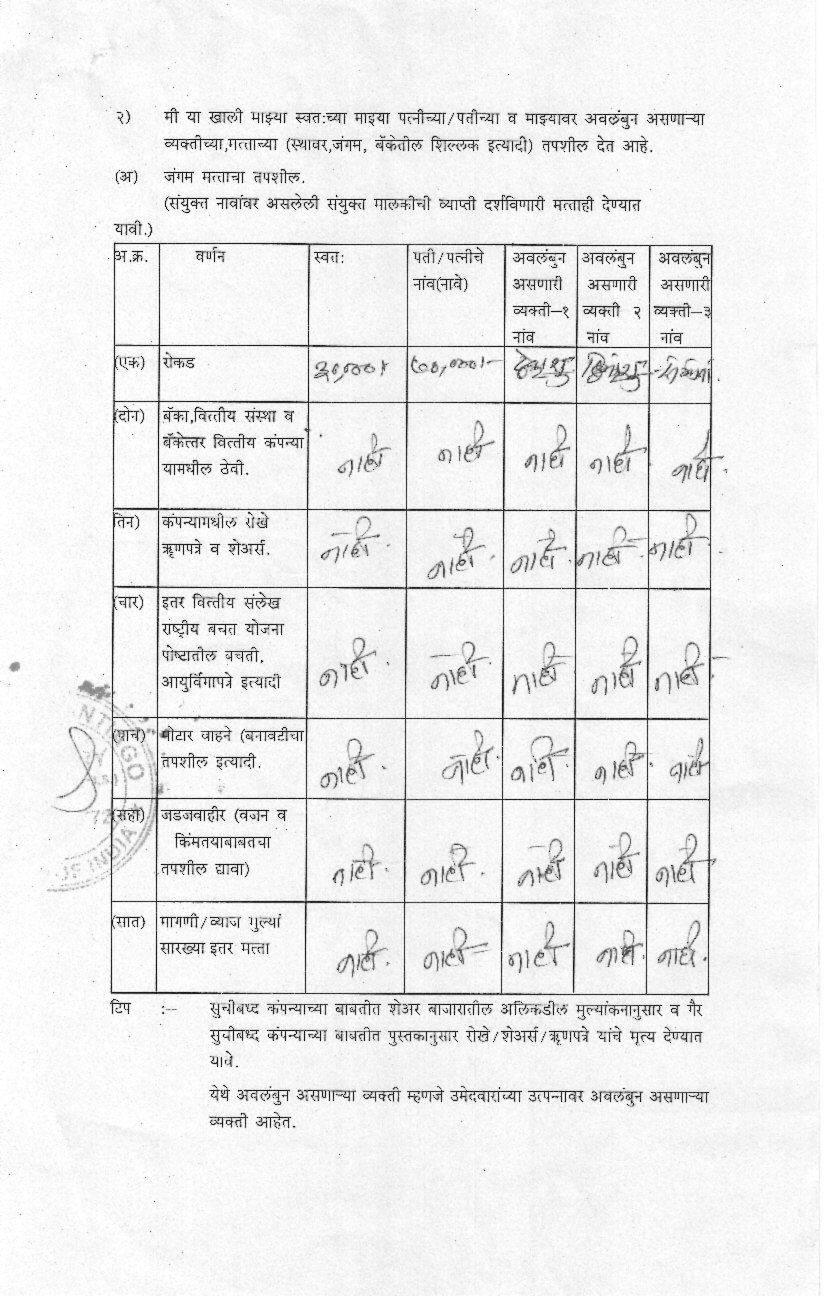 २) मी या खाली माझ्या स्वत:च्या माझ्या पत्नीच्या/पतीच्या व माझ्यावर अवलंबुन असणाऱ्या
व्यक्तीच्या,मत्ताच्या (स्थावर,जंगम, बॅकेतील शिल्लक इत्यादी) तपशील देत आहे.
(अ) जंगम मत्ताचा तपशील.
(संयुक्त नावांवर असलेली संयुक्त मालकीची व्याप्ती दर्शविणारी मत्ताही देण्यात
यावी.)
अ.क्र. वर्णन स्वत: पती/पत्नीचे अवलंबुन अवलंबुन अवलंबुन
नांव(नावे) असणारी असणारी असणारी
व्यक्ती–१ व्यक्ती २ व्यक्ती–३
नांव नांव नांव
(एक) रोकड
(दोन) बॅका,वित्तीय संस्था व
बॅकेत्तर वित्तीय कंपन्या
यामधील ठेवी. नाही नाही नाही नाही नाही
तिन) कंपन्यामधील रोखे
ऋणपत्रे व शेअर्स. नाही नाही नाही नाही नाही
(चार) इतर वित्तीय संलेख
राष्ट्रीय बचत योजना
पोष्टातील बचती,
आयुर्विमापत्रे इत्यादी नाही नाही नाही नाही नाही
(पाच) मोटार वाहने (बनावटीचा
तपशील इत्यादी. नाही नाही नाही नाही नाही
(सहा) जडजवाहीर (वजन व
किंमतयाबाबतचा
तपशील द्यावा) नाही नाही नाही नाही नाही
(सात) मागणी/व्याज मुल्यां
सारख्या इतर मत्ता नाही नाही नाही नाही नाही
टिप :– सुचीबध्द कंपन्याच्या बाबतीत शेअर बाजारातील अलिकडील मुल्यांकनानुसार व गैर
सुचीबध्द कंपन्याच्या बाबतीत पुस्तकानुसार रोखे/शेअर्स/ऋणपत्रे यांचे मृत्य देण्यात
यावे.
येथे अवलंबुन असणाऱ्या व्यक्ती म्हणजे उमेदवारांच्या उत्पन्नावर अवलंबुन असणाऱ्या
व्यक्ती आहेत.